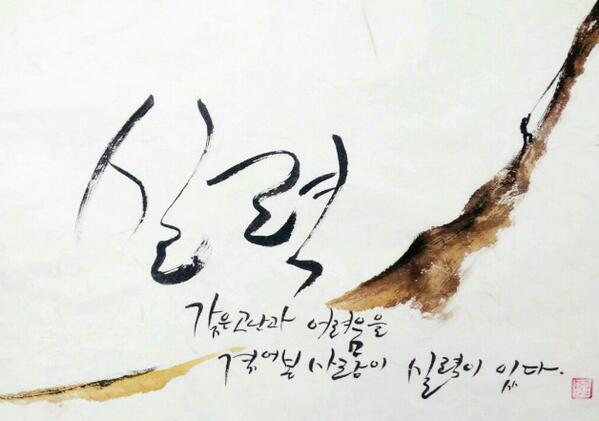 실력
갖은 고난과 어려움을
겪어본 사람이 실력이 있다.